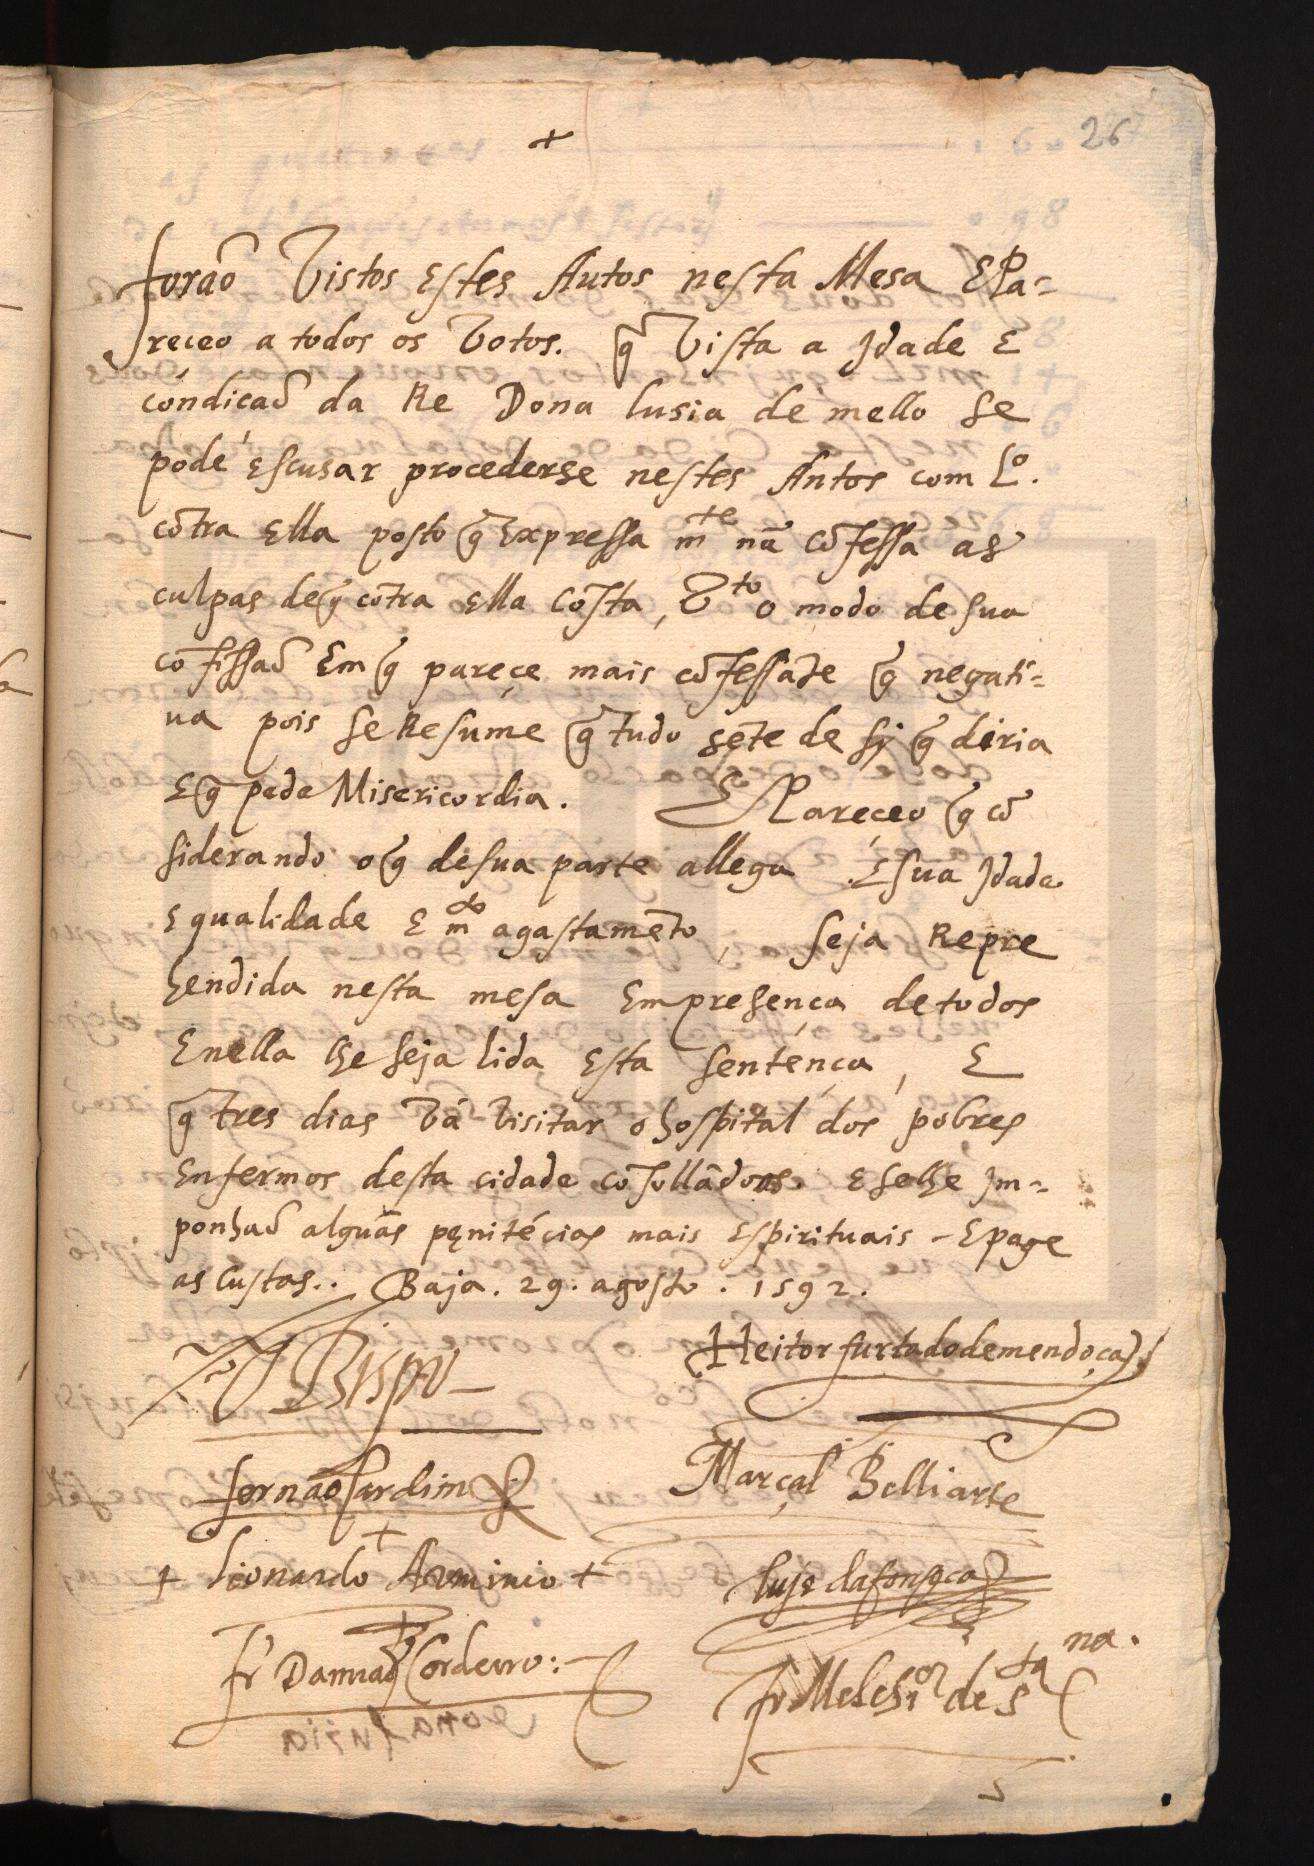 +
26
forão Vistos Estes Autos nesta Mesa E Pa=
reçeo a todos os Votos. q̃ Vista a Jdade E
condicaõ da Re Dona lusia de mello se
pode escusar procederse nestes Autos com Lo.
cõtra Ella posto q̃ Expressa mte nã cõfessa as
culpas de q̃ cõtra ella Cõsta, Vto o modo de sua
cõfissaõ Em q̃ pareçe mais cõfessãte q̃ negati=
ua pois se Resume q̃ tudo sẽte de sj q̃ diria
E q̃ pede Misericordia. E Pareçeo q̃ cõ
siderando o q̃ de sua parte allega E sua Jdade
E qualidade E mto agastamẽto, seja Repre
hendida nesta mesa Em presença de todos
E nella lhe seja lida Esta sentença, E
q̃ tres dias Vá Visitar o hospital dos pobres
Enfermos desta cidade cõsollãdoos. E se lhe Jm=
ponhaõ alguãs penitẽcias mais Espirituais - E page
as Custas.. Baja. 29. agosto. 1592.
Bispo
Heitor furtado de mendoça
fernão Cardim
Marçal Belliarte
+ Lionardo Arminio +
luis da fonseca
fr Damiaõ Cordeiro:-
fr Melchior de Sta na.